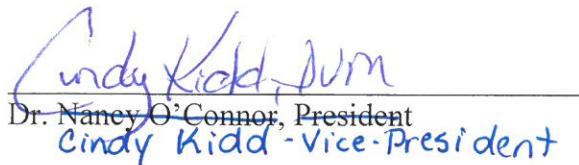 Cindy Kidd, DVM
Dr. Nancy O'Connor, President
Cindy Kidd - Vice-President